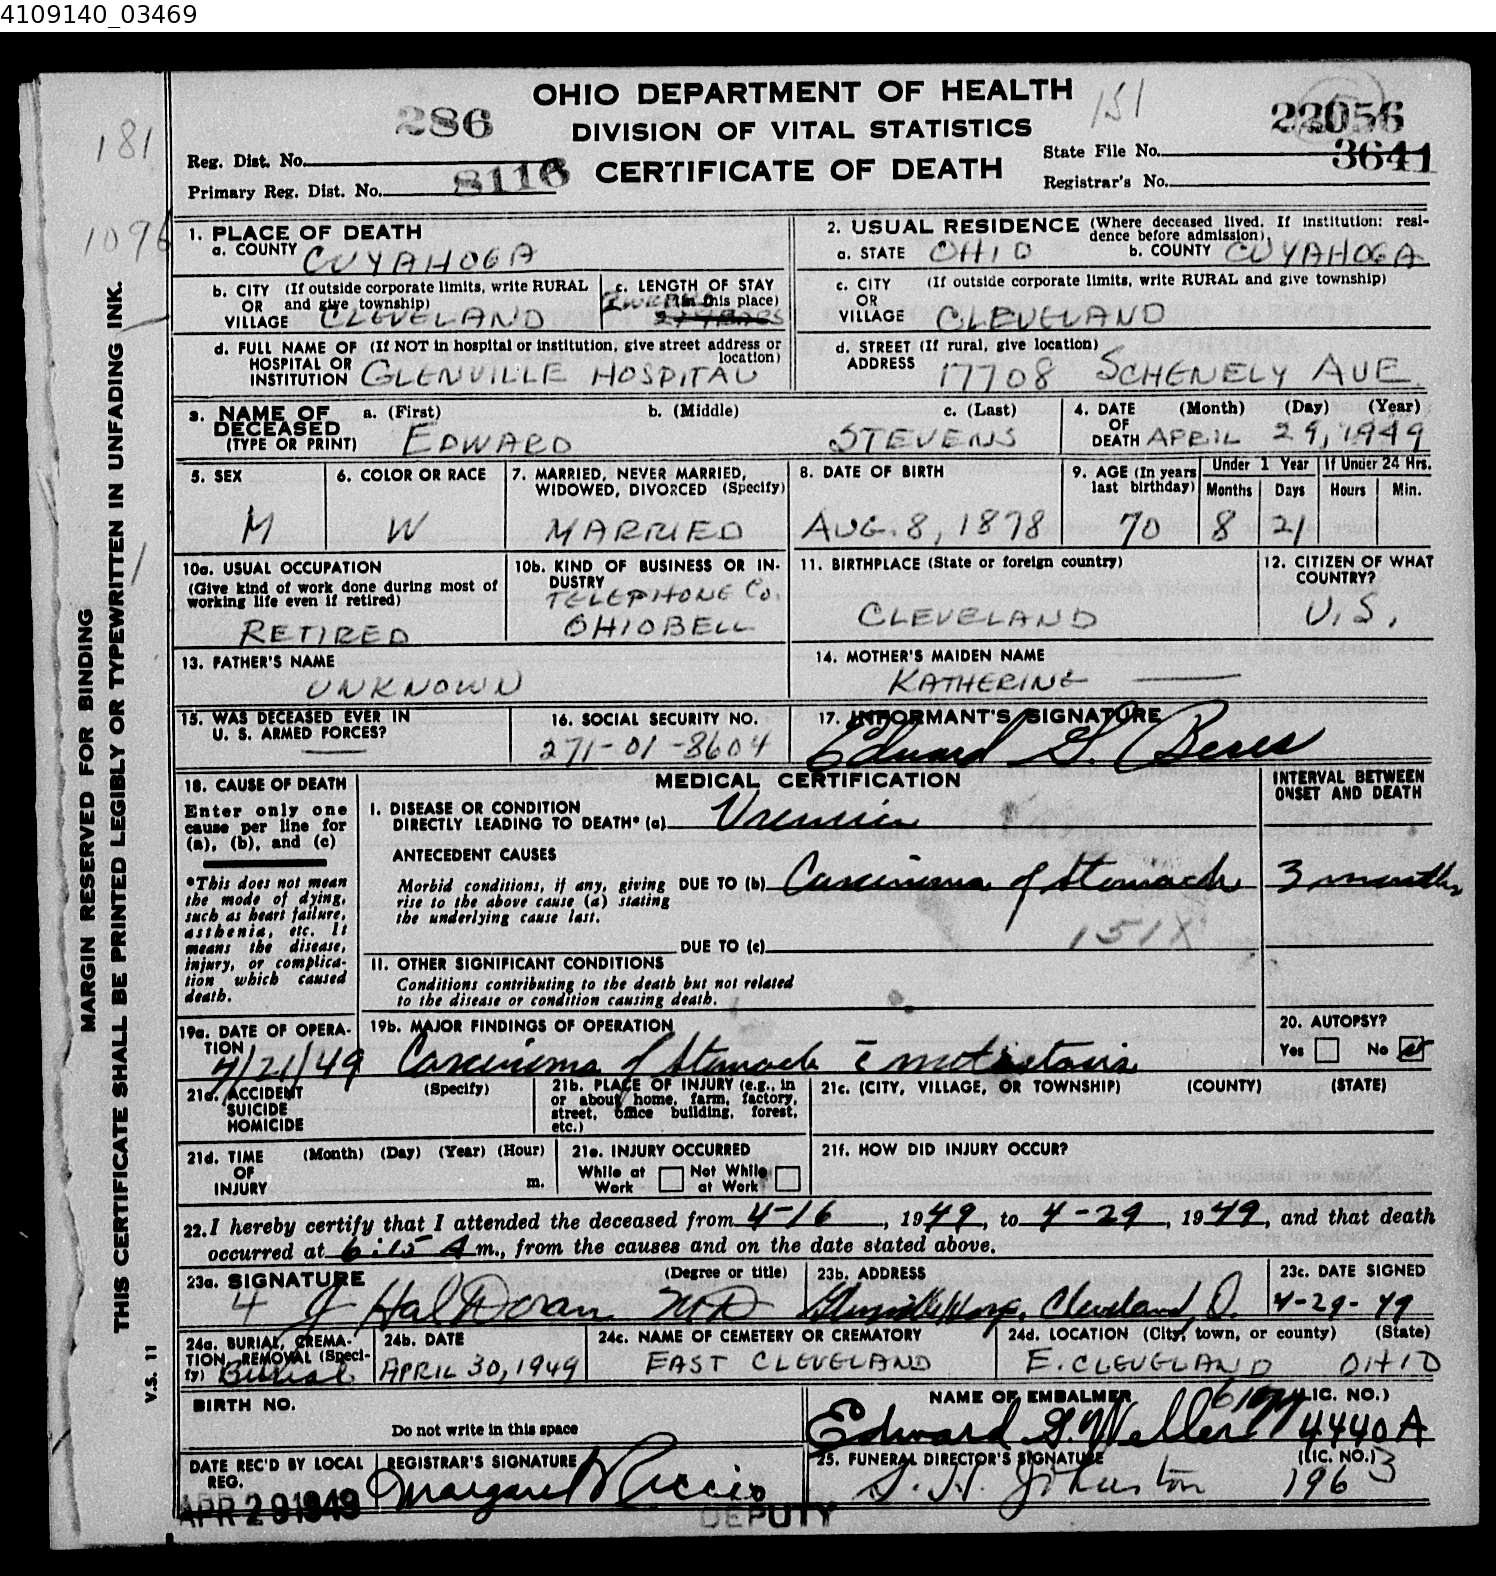 4109140_03469
OHIO DEPARTMENT OF HEALTH
DIVISION OF VITAL STATISTICS
CERTIFICATE OF DEATH
181
1096
151
Reg. Dist. No. 286
Primary Reg. Dist. No. 8116
State File No. 22056
Registrar's No. 3641
MARGIN RESERVED FOR BINDING
THIS CERTIFICATE SHALL BE PRINTED LEGIBLY OR TYPEWRITTEN IN UNFADING INK.
V.S. 11
1. PLACE OF DEATH
a. COUNTY CUYAHOGA
2. USUAL RESIDENCE (Where deceased lived. If institution: resi-
dence before admission).
a. STATE OHIO b. COUNTY CUYAHOGA
b. CITY (If outside corporate limits, write RURAL
OR and give township)
VILLAGE CLEVELAND
c. LENGTH OF STAY
(in this place)
c. CITY (If outside corporate limits, write RURAL and give township)
OR
VILLAGE CLEVELAND
d. FULL NAME OF (If NOT in hospital or institution, give street address or
HOSPITAL OR location)
INSTITUTION GLENVILLE HOSPITAL
d. STREET (If rural, give location)
ADDRESS 17708 SCHENELY AVE.
3. NAME OF a. (First) b. (Middle) c. (Last)
DECEASED
(TYPE OR PRINT) EDWARD STEVENS
4. DATE (Month) (Day) (Year)
OF
DEATH APRIL 29, 1949
5. SEX
M
6. COLOR OR RACE
W
7. MARRIED, NEVER MARRIED,
WIDOWED, DIVORCED (Specify)
MARRIED
8. DATE OF BIRTH
AUG. 8, 1878
9. AGE (In years
last birthday)
70
Under 1 Year
Months Days
8 21
If Under 24 Hrs.
Hours Min.
10a. USUAL OCCUPATION
(Give kind of work done during most of
working life even if retired)
RETIRED
10b. KIND OF BUSINESS OR IN-
DUSTRY
TELEPHONE Co.
OHIO BELL
11. BIRTHPLACE (State or foreign country)
CLEVELAND
12. CITIZEN OF WHAT
COUNTRY?
U.S.
13. FATHER'S NAME
UNKNOWN
14. MOTHER'S MAIDEN NAME
KATHERINE ——
15. WAS DECEASED EVER IN
U. S. ARMED FORCES?
——
16. SOCIAL SECURITY NO.
271-01-8604
17. INFORMANT'S SIGNATURE
Edward G. Beres
18. CAUSE OF DEATH
Enter only one
cause per line for
(a), (b), and (c)
*This does not mean
the mode of dying,
such as heart failure,
asthenia, etc. It
means the disease,
injury, or complica-
tion which caused
death.
MEDICAL CERTIFICATION
INTERVAL BETWEEN
ONSET AND DEATH
I. DISEASE OR CONDITION
DIRECTLY LEADING TO DEATH* (a) Uremia
ANTECEDENT CAUSES
Morbid conditions, if any, giving
rise to the above cause (a) stating
the underlying cause last.
DUE TO (b) Carcinoma of Stomach 3 months
151X
DUE TO (c)
II. OTHER SIGNIFICANT CONDITIONS
Conditions contributing to the death but not related
to the disease or condition causing death.
19a. DATE OF OPERA-
TION
4/21/49
19b. MAJOR FINDINGS OF OPERATION
Carcinoma of Stomach c̄ metastasis
20. AUTOPSY?
Yes No
21a. ACCIDENT (Specify)
SUICIDE
HOMICIDE
21b. PLACE OF INJURY (e.g., in
or about home, farm, factory,
street, office building, forest,
etc.)
21c. (CITY, VILLAGE, OR TOWNSHIP) (COUNTY) (STATE)
21d. TIME (Month) (Day) (Year) (Hour)
OF
INJURY m.
21e. INJURY OCCURRED
While at Not While
Work at Work
21f. HOW DID INJURY OCCUR?
22. I hereby certify that I attended the deceased from 4-16, 1949, to 4-29, 1949, and that death
occurred at 6:15 A m., from the causes and on the date stated above.
23a. SIGNATURE (Degree or title)
Hal Doran MD
23b. ADDRESS
Glenville Hosp, Cleveland, O.
23c. DATE SIGNED
4-29-49
24a. BURIAL, CREMA-
TION, REMOVAL (Speci-
fy) Burial
24b. DATE
APRIL 30, 1949
24c. NAME OF CEMETERY OR CREMATORY
EAST CLEVELAND
24d. LOCATION (City, town, or county) (State)
E. CLEVELAND OHIO
BIRTH NO.
Do not write in this space
NAME OF EMBALMER (LIC. NO.)
Edward G. Weller 4440A
DATE REC'D BY LOCAL
REG.
APR 29 1949
REGISTRAR'S SIGNATURE
Margaret Riccio
DEPUTY
25. FUNERAL DIRECTOR'S SIGNATURE (LIC. NO.)
S. H. Johnston 1963